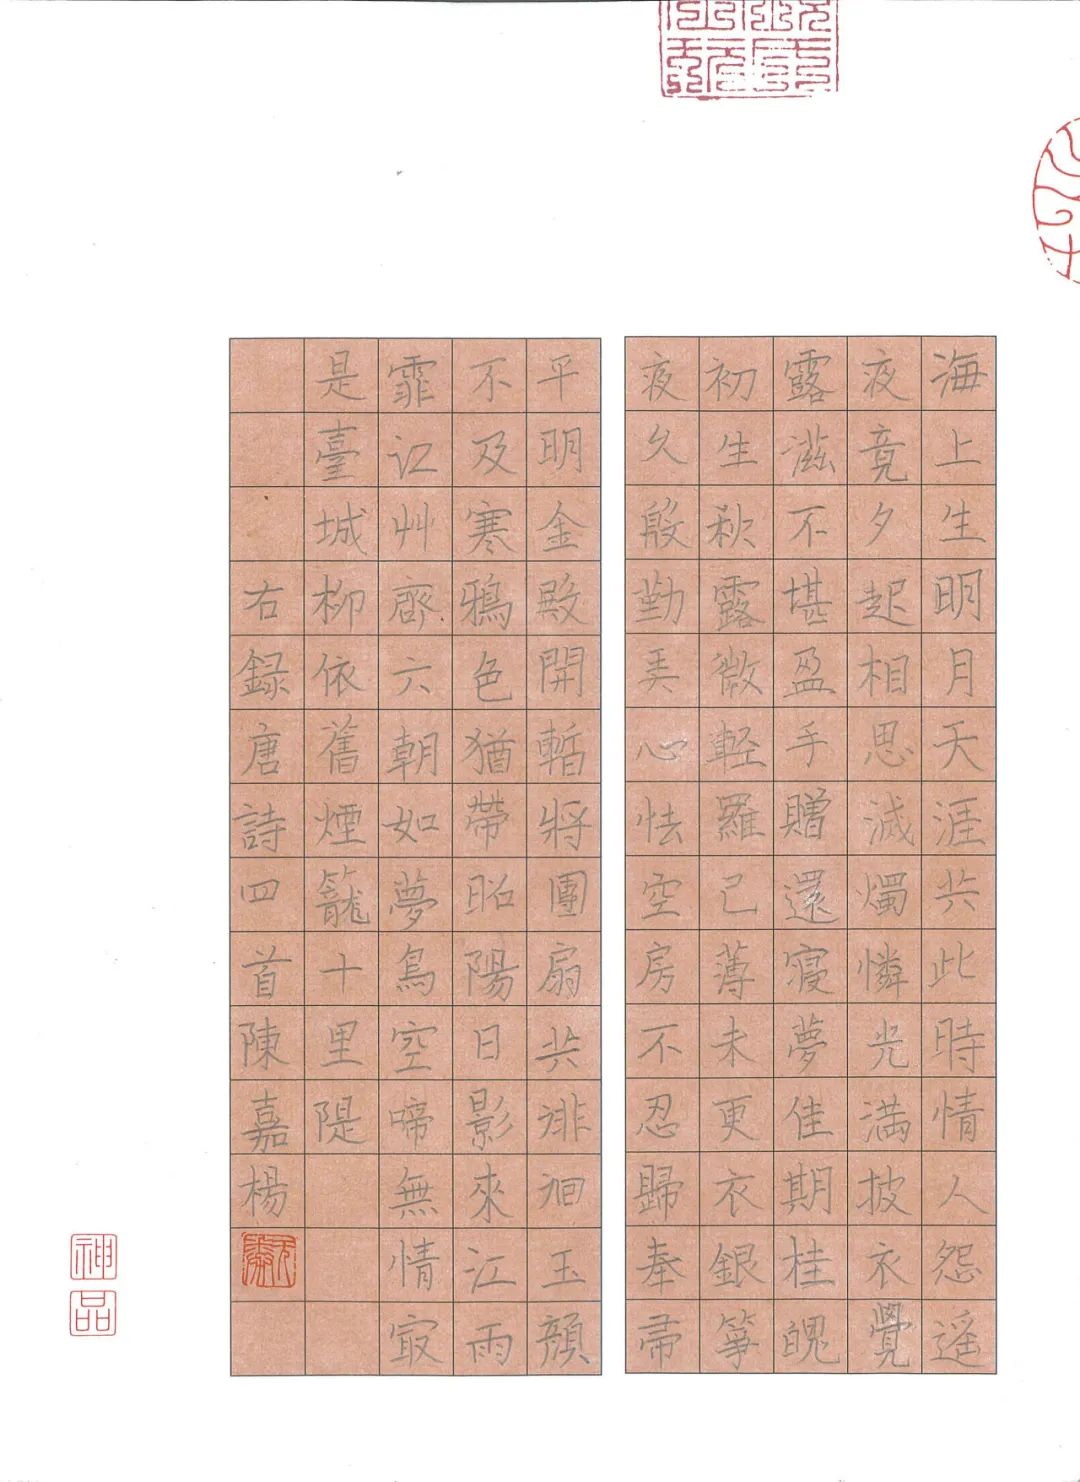 海上生明月天涯共此時情人怨遥
夜竟夕起相思滅燭憐光满披衣覺
露滋不堪盈手贈還寝夢佳期桂魄
初生秋露微輕羅已薄未更衣銀箏
夜久殷勤弄心怯空房不忍歸奉帚
平明金殿開暫將團扇共徘徊玉顔
不及寒鴉色猶帶昭陽日影來江雨
霏江艸齊六朝如夢鳥空啼無情最
是臺城柳依舊煙籠十里隄
右録唐詩四首陳嘉楊
神品